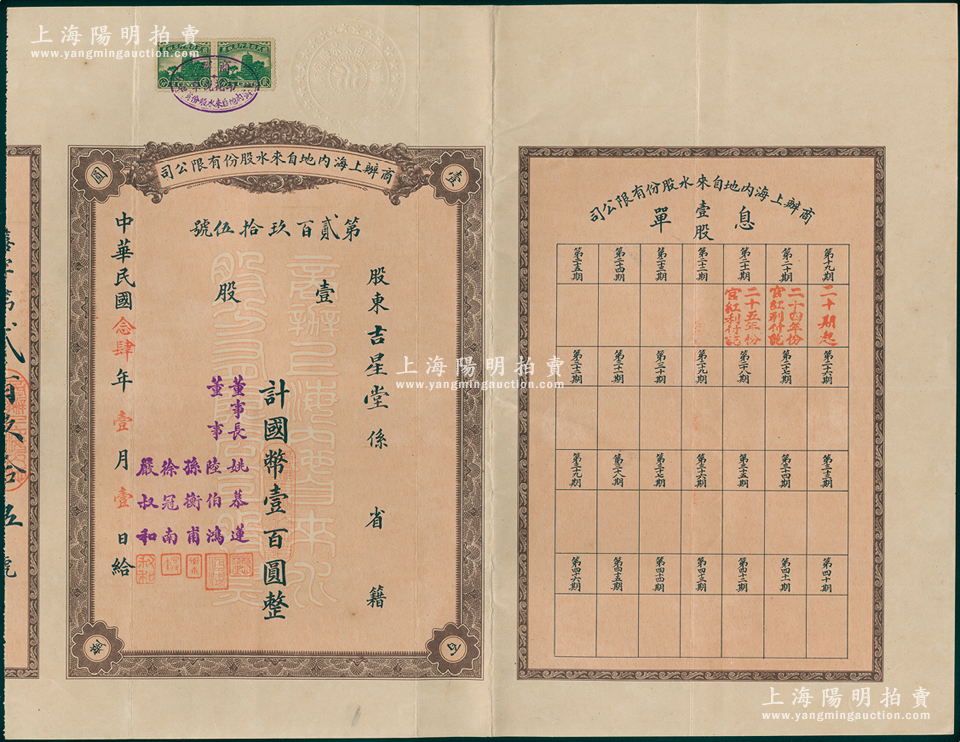 上海陽明拍賣
www.yangmingauction.com
商辦上海內地自來水股份有限公司
壹
百
圓
第貳百玖拾伍號
股東吉星堂係 省 籍
壹股
計國幣壹百圓整
董事長 姚慕蓮
董事 陸伯鴻
孫衡甫
徐冠南
嚴叔和
中華民國念肆年壹月壹日給
商辦上海內地自來水股份有限公司
壹股
息單
第十九期
第二十期
第二十一期
第二十二期
第二十三期
第二十四期
第二十五期
二十期起
二十四年份官紅利付訖
二十五年份官紅利付訖
第二十六期
第二十七期
第二十八期
第二十九期
第三十期
第三十一期
第三十二期
第三十三期
第三十四期
第三十五期
第三十六期
第三十七期
第三十八期
第三十九期
第四十期
第四十一期
第四十二期
第四十三期
第四十四期
第四十五期
第四十六期
貳百玖拾伍號
上海陽明拍賣
www.yangmingauction.com
上海陽明拍賣
www.yangmingauction.com